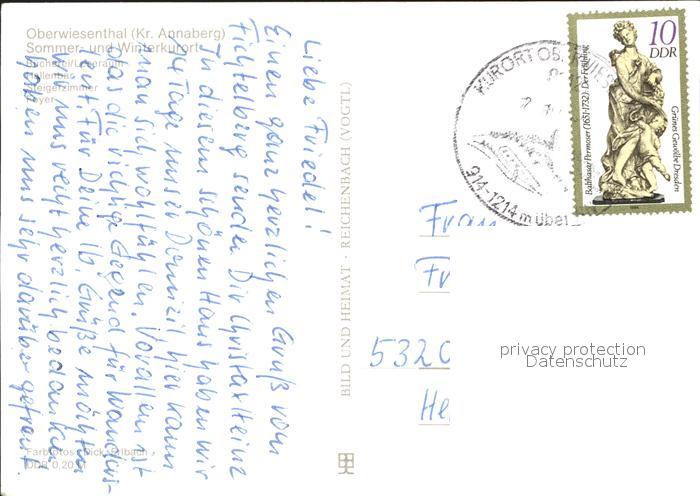 Oberwiesenthal (Kr. Annaberg)
Sommer- und Winterkurort
Bücherei/Leseraum
Hallenbar
Steigerzimmer
Foyer
Liebe Friedel!
Einen ganz herzlichen Gruß vom
Fichtelberg senden Dir Christa u. Heinz
In diesem schönen Haus haben wir
14 Tage unser Domizil hier kann
man sich wohlfühlen. Vorallem ist
das die richtige Gegend für Wanders-
leut. Für Deine lb. Grüße möchten
wir uns recht herzlich bedanken
haben uns sehr darüber gefreut.
Farbfotos: Dick, Erlbach
DDR 0,20 M
BILD UND HEIMAT · REICHENBACH (VOGTL)
KURORT OB. WIES
914-1214 m über
10
DDR
Balthasar Permoser (1651-1732): Der Frühling
Grünes Gewölbe Dresden
1984
Frau
Fr
5320
He
privacy protection
Datenschutz